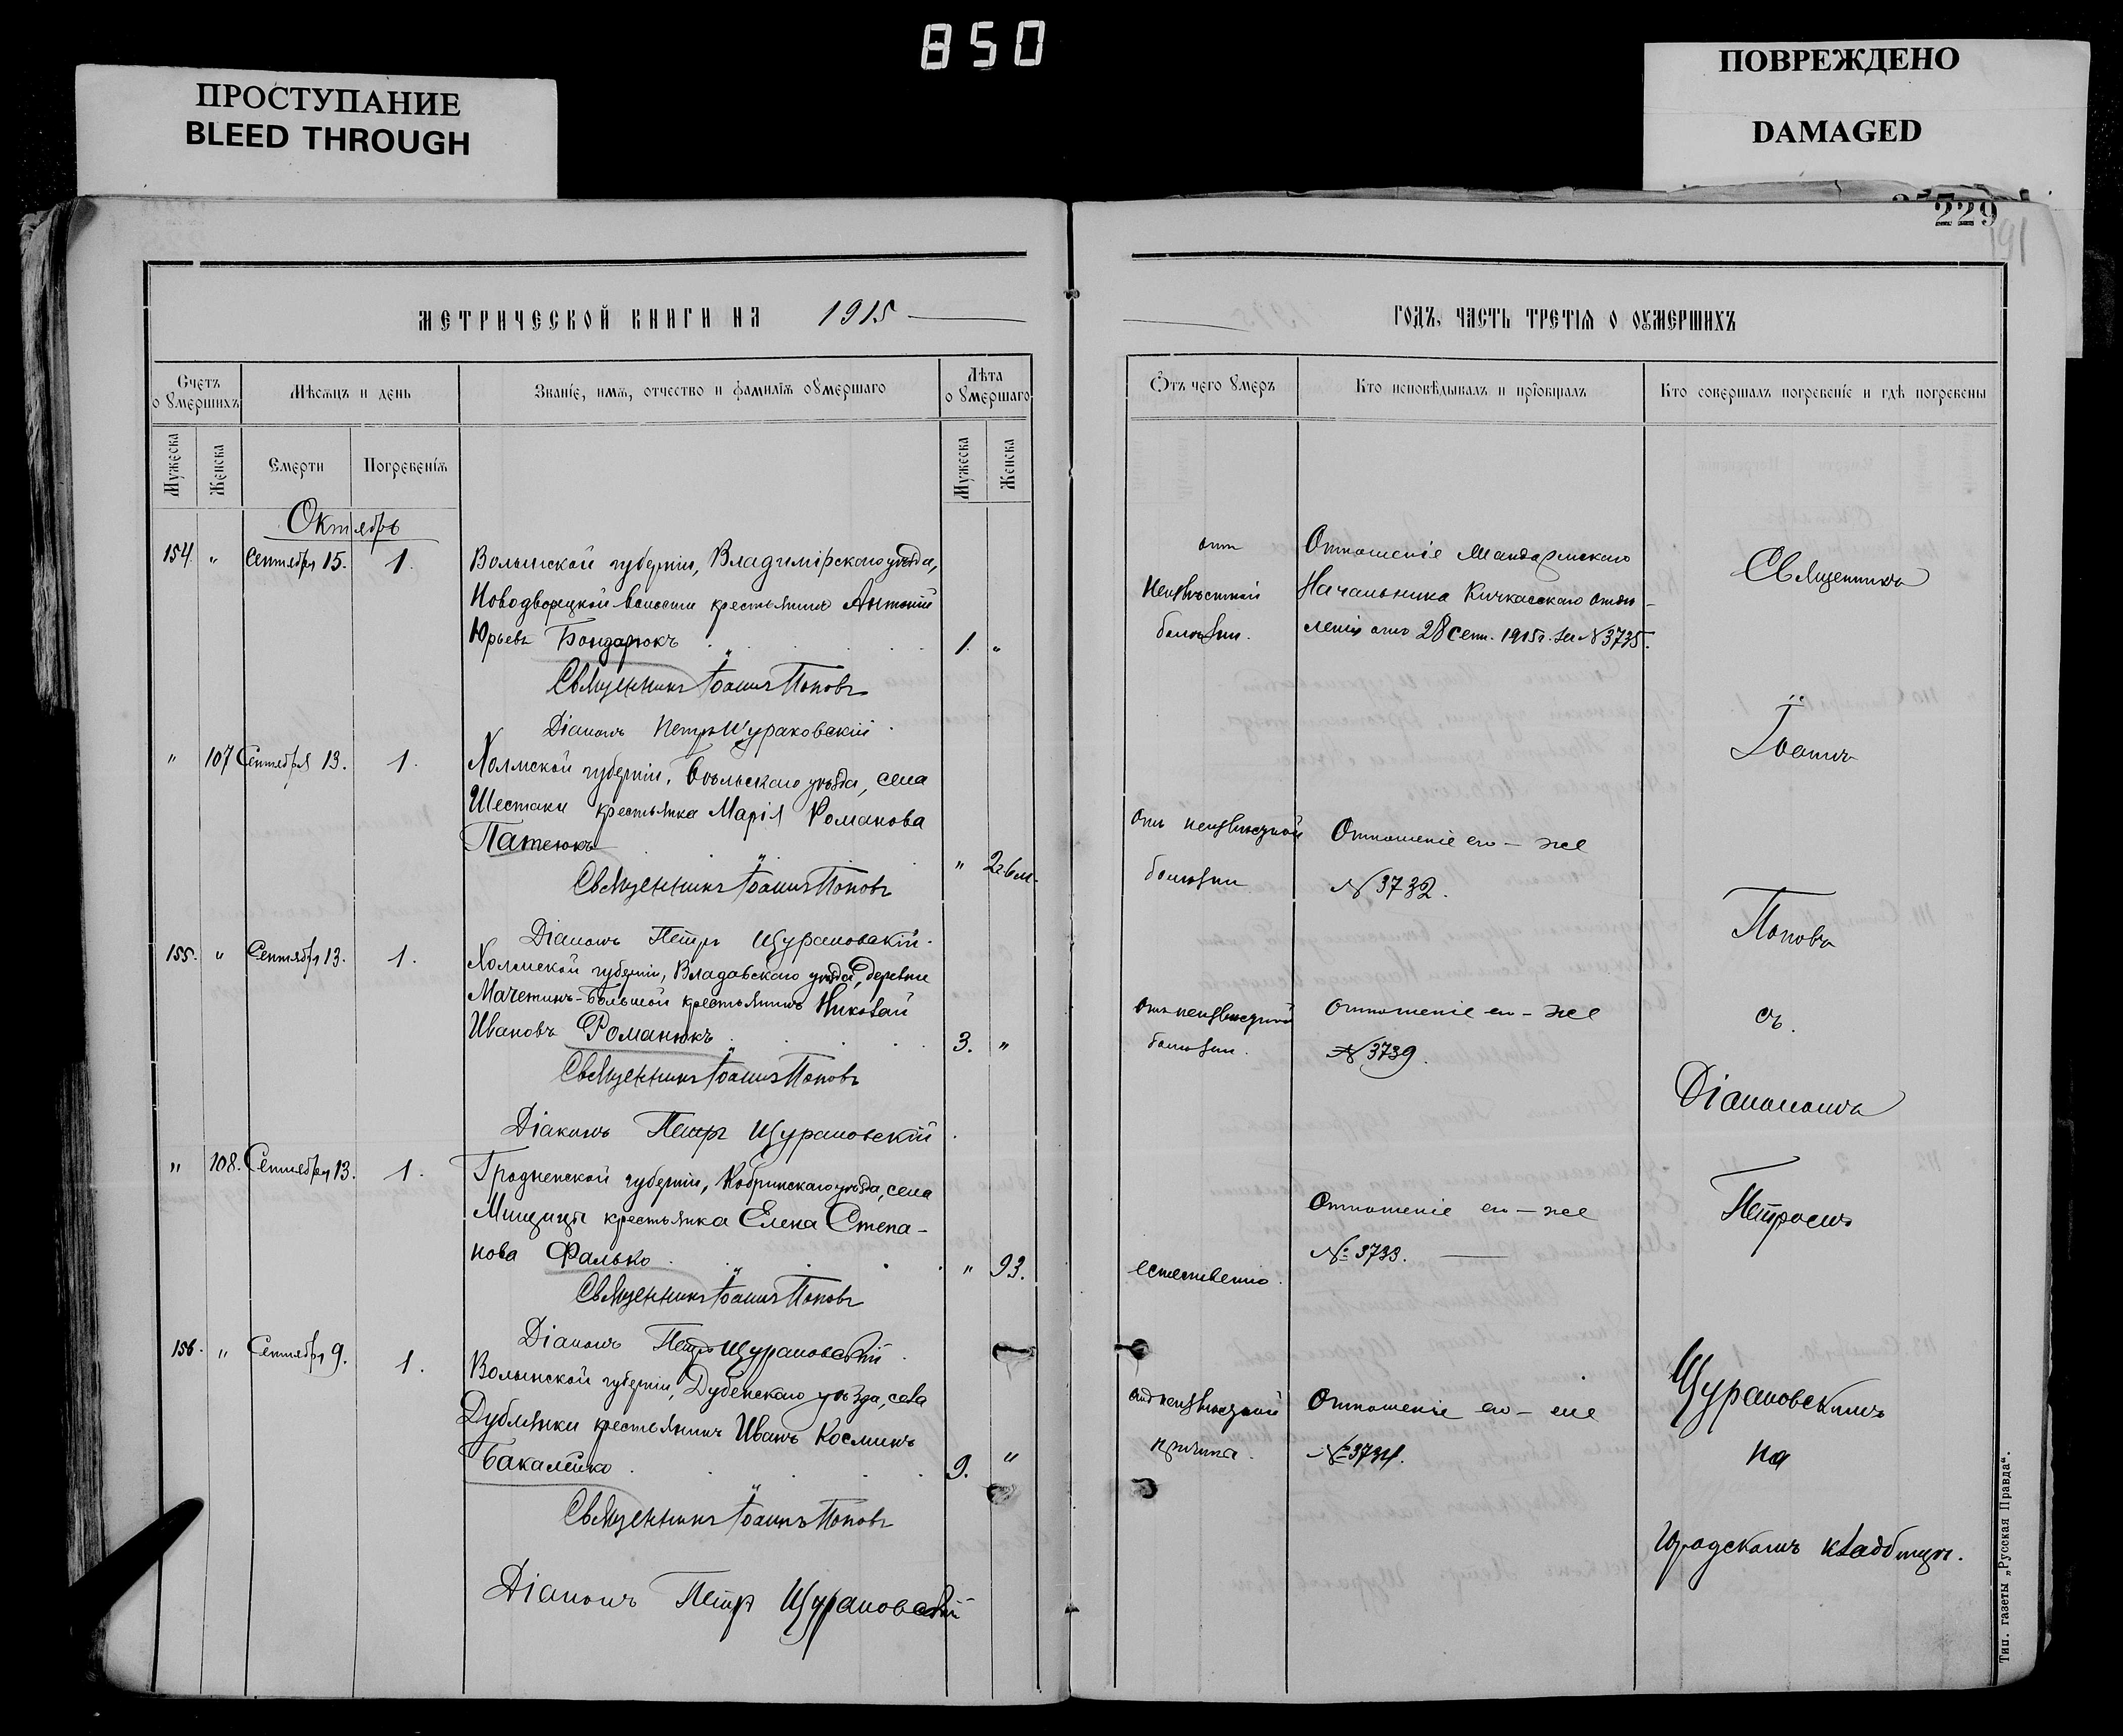 850
ПРОСТУПАНИЕ
BLEED THROUGH
ПОВРЕЖДЕНО
DAMAGED
229
191
МЕТРИЧЕСКОЙ КНИГИ НА 1915
ГОДЪ, ЧАСТЬ ТРЕТІЯ О ОУМЕРШИХЪ
Счетъ о умершихъ
Мѣсяцъ и день
Званіе, имя, отчество и фамилія оумершаго
Лѣта оумершаго
Отъ чего умеръ
Кто исповѣдывалъ и пріобщалъ
Кто совершалъ погребеніе и гдѣ погребены
Мужеска
Женска
Смерти
Погребенія
Мужеска
Женска
Октябрь
154. " Сентября 15. 1.
Волынской губерніи, Владимірскаго уѣзда,
Новодворецкой волости крестьянинъ Антоній
Юрьевъ Бондарюкъ 1. "
Священникъ Іоаннъ Поповъ
Діаконъ Петръ Щураковскій.
отъ
неизвѣстной
болѣзни.
Отношеніе Жандармскаго
Начальника Кичкасскаго отдѣ-
ленія отъ 28 сент. 1915 г. за № 3735.
" 107 Сентября 13. 1.
Холмской губерніи, Бѣльскаго уѣзда, села
Шестаки крестьянка Марія Романова
Патеюкъ " 2 г. 6 м.
Священникъ Іоаннъ Поповъ
Діаконъ Петръ Щураковскій.
отъ неизвѣстной
болѣзни
Отношеніе его-же
№ 3732.
155. " Сентября 13. 1.
Холмской губерніи, Владавскаго уѣзда, деревни
крестьянинъ Николай
Ивановъ Романюкъ 3. "
Священникъ Іоаннъ Поповъ
Діаконъ Петръ Щураковскій.
отъ неизвѣстной
болѣзни.
Отношеніе его-же
№ 3739.
" 108. Сентября 13. 1.
Гродненской губерніи, Кобринскаго уѣзда, села
крестьянка Елена Степа-
нова Фалько " 93.
Священникъ Іоаннъ Поповъ
Діаконъ Петръ Щураковскій.
естественно.
Отношеніе его-же
№ 3733.
156. " Сентября 9. 1.
Волынской губерніи, Дубенскаго уѣзда, села
Дублянки крестьянинъ Иванъ Косминъ
Бакалейко 9. "
Священникъ Іоаннъ Поповъ
Діаконъ Петръ Щураковскій
Отношеніе его-же
№ 3734.
Священникъ
Іоаннъ
Поповъ
съ
Діакономъ
Петромъ
Щураковскимъ
на
городскомъ кладбищѣ.
Тип. газеты „Русская Правда“.